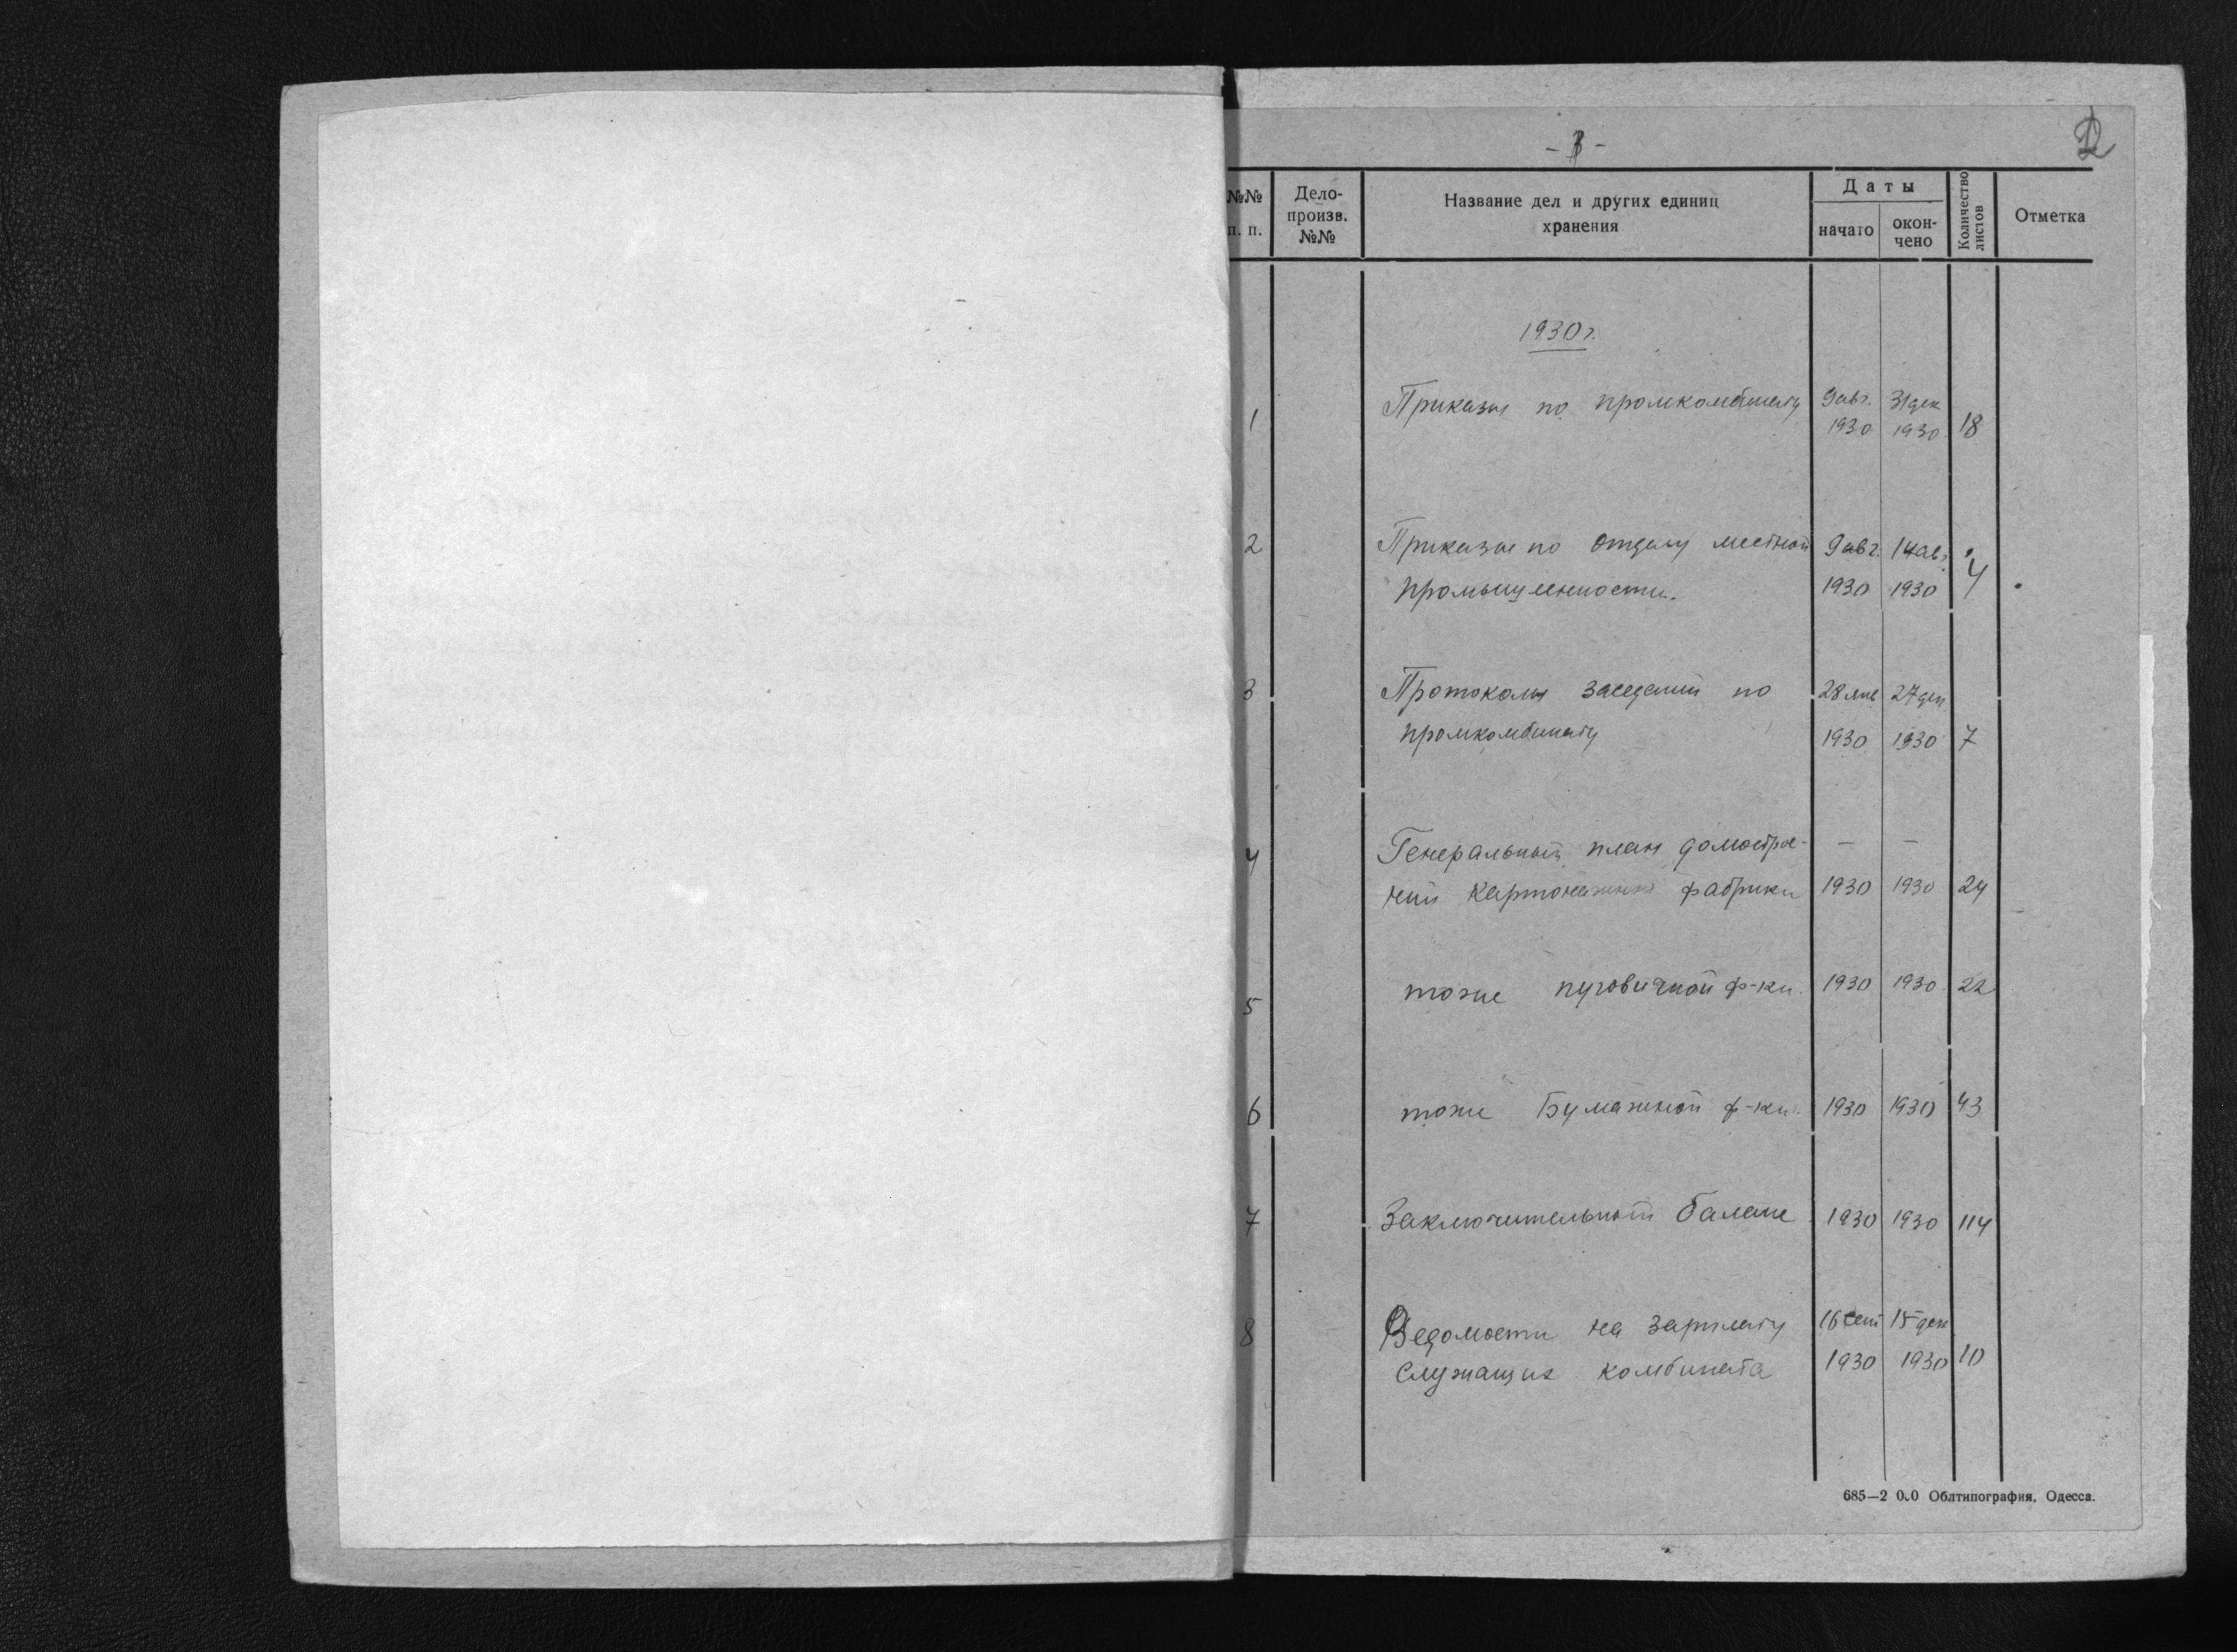 2
№№ п. п.
Дело-
произв.
№№
Название дел и других единиц
хранения
Даты
начато
окон-
чено
Количество
листов
Отметка
1930г.
1 Приказы по промкомбинату 9авг. 1930 31дек 1930 18
2 Приказы по отделу местной 9авг. 14авг.
промышленности. 1930 1930 4
3 Протоколы заседаний по 28янв 27дек
промкомбинату 1930 1930 7
4 Генеральный план домострое- – –
ний картонажной фабрики 1930 1930 24
5 тоже пуговичной ф-ки. 1930 1930 22
6 тоже Бумажной ф-ки. 1930 1930 43
7 Заключительный баланс 1930 1930 114
8 Ведомости на зарплату 16сент 15дек
служащих комбината 1930 1930 10
685—2 0.0 Облтипография, Одесса.